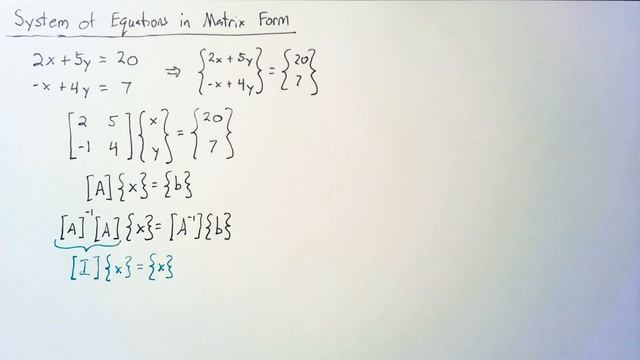 System of Equations in Matrix Form
2x + 5y = 20
-x + 4y = 7
⇒ {2x + 5y
-x + 4y} = {20
7}
[2 5
-1 4] {x
y} = {20
7}
[A]{x} = {b}
[A]⁻¹[A]{x} = [A⁻¹]{b}
[I]{x} = {x}